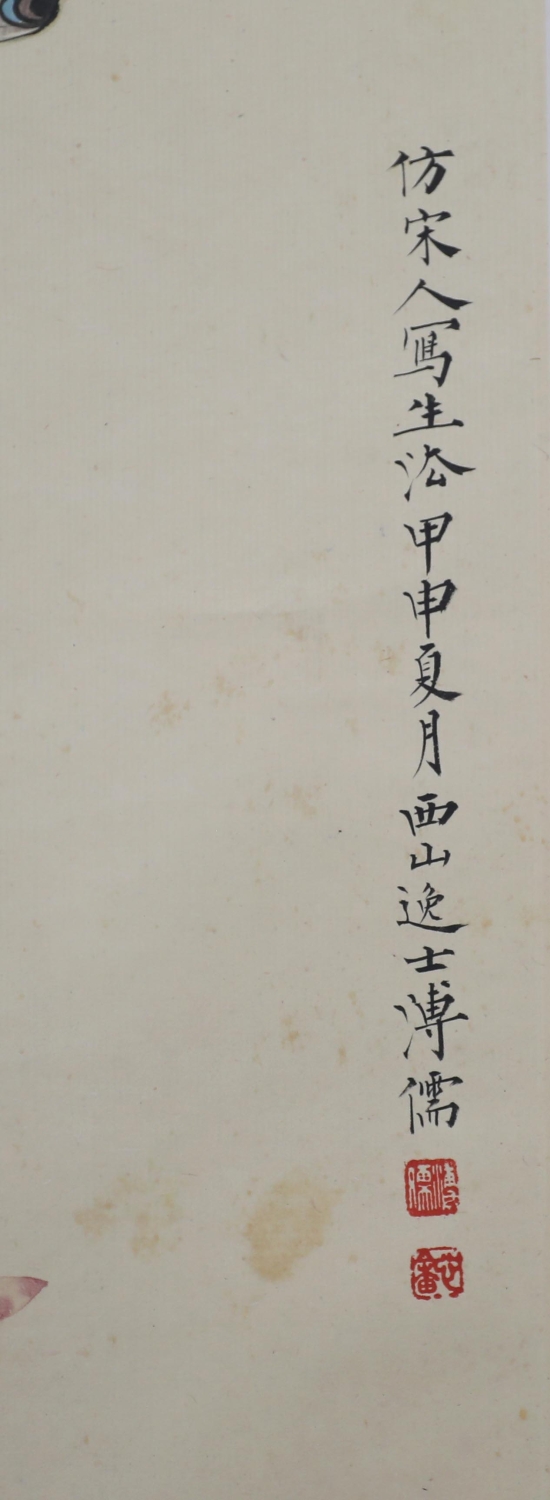 仿宋人寫生法甲申夏月西山逸士溥儒
溥儒